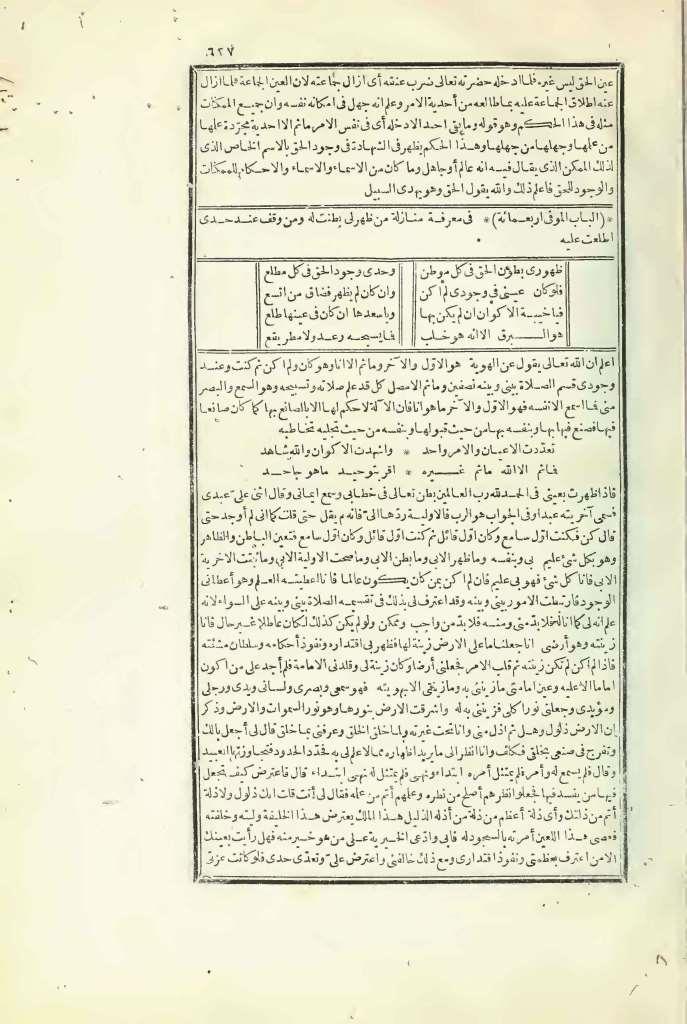 ٦٢٧
عين الحق ليس غيره فلما ادخله حضرته تعالى ضرب عنقه أى ازال جماعته لان العين الجماعة فلما ازال
عنه اطلاق الجماعة عليه بما طالعه من أحدية الامر وعلم انه جهل فى امكانه نفسه وان جميع الممكنات
مثله فى هذا الحكم وهو قوله وما بقى احد الا دخله أى فى نفس الامر ما ثم الا احدية مجردة علمها
من علمها وجهلها من جهلها وهذا الحكم يظهر فى الشهادة فى وجود الحق بالاسم الخاص الذى
لذلك الممكن الذى يقال فيه انه عالم أو جاهل وما كان من الاسماء والاسماء والاحكام للممكنات
والوجود للحق فاعلم ذلك والله يقول الحق وهو يهدى السبيل
*(الباب الموفى اربعمائة)* فى معرفة منازلة من ظهر لى بطنت له ومن وقف عند حدى
اطلعت عليه
ظهورى بطون الحق فى كل موطن وحدى وجود الحق فى كل مطلع
فلو كان عينى فى وجودى لم أكن وان كان لم يظهر فضاق من اتسع
فيا خيبة الاكوان ان لم يكن بها ويا سعدها ان كان فى عينها طلع
هو البرق الا انه هو خلب فما يسبحه رعد ولا مطر يقع
اعلم ان الله تعالى يقول عن الهوية هو الاول والآخر وما ثم الا انا وهو كان ولم اكن ثم كنت وعند
وجودى قسم الصلاة بينى وبينه نصفين وما ثم الا مصل كل قد علم صلاته وتسبيحه وهو السمع والبصر
منى فما اسمع الا نفسه فهو الاول والآخر ما هو انا فان الآلة لا حكم لها الا بالصانع بها كما كان صانعا
فيها فصنع فيها بها وبنفسه بها من حيث قبولها وبنفسه من حيث تجليه تخاطبه
تعددت الاعيان والامر واحد * واشهدت الاكوان والله شاهد
فما ثم الا الله ما ثم غيره * اقر بتوحيد ما هو جاحد
فاذا ظهرت بعينى فى الحمد لله رب العالمين بطن تعالى فى خطابى وسمع ايمانى وقال اثنى على عبدى
فسمى آخريته عبدا وفى الجواب هو الرب فالاولية ردها الى فانه لم يقل حتى قلت كما انى لم أوجد حتى
قال كن فكنت اول سامع وكان اول قائل ثم كنت اول قائل وكان اول سامع فتعين الباطن والظاهر
وهو بكل شئ عليم بى وبنفسه وما ظهر الا بى وما بطن الا بى وما صحت الاولية الا بى وما ثبتت الاخرية
الا بى فانا كل شئ فهو بى عليم فان لم اكن بمن كان يكون عالما فانا اعطيته العلم وهو أعطانى
الوجود فارتبطت الامور بينى وبينه وقد اعترف لى بذلك فى تقسيمه الصلاة بينى وبينه على السواء لانه
علم انه لى كما انا له فلا بد منى ومنه فلا بد من واجب وممكن ولو لم يكن كذلك لكان عاطلا غير حال فانا
زينته وهو أرضى انا جعلنا ما على الارض زينة لها فظهر بى اقتداره ونفوذ أحكامه وسلطان مشيئته
فاذا لم أكن لم تكن زينته ثم قلب الامر فجعلنى أرضا وكان زينة لى وقلدنى الامامة فلم أجد على من اكون
اماما الا عليه وعين امامتى ما زيننى به وما زيننى الا بهويته فهو سمعى وبصرى ولسانى ويدى ورجلى
ومؤيدى وجعلنى نورا كلى فزينتى به له واشرقت الارض بنور ربها وهو نور السموات والارض وذكر
ان الارض ذلول وهل ثم اذل منى وانا تحت عزته ولما خلق الخلق وعرفنى بما خلق قال لى أجعل بالك
وتفرج فى صنعى بخلقى فكلف وانا انظر الى ما يريد اظهاره مما لا علم لى به فحدد الحدود فتجاوزتها العبيد
وقال فلم يسمع له وأمر فلم يمتثل أمره ابتداء ونهى فلم يمتثل له نهيه ابتداء قال فاعترض كيف تجعل
فيها من يفسد فيها فجعلوا نظرهم أصلح من نظره وعلمهم أتم من علمه فقال لى أنت قلت انك ذلول ولا ذلة
أتم من ذلك وأى ذلة أعظم من ذلة من أذله الذليل هذا الملك يعترض هذا الخليفة وليته وخلقته
فعصى هذا اللعين أمرته بالسجود له فابى وادعى الخيرية على من هو خير منه فهل رأيت بعينك
الا من اعترف بعظمتى ونفوذ اقتدارى ومع ذلك خالفنى واعترض على وتعدى حدى فلو كانت عزتى